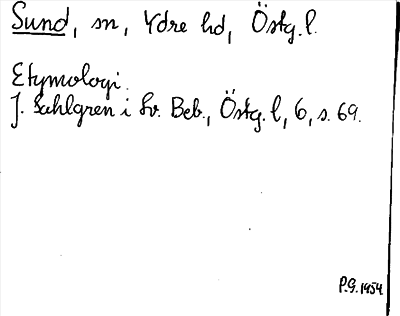 Sund, sn, Ydre hd, Östg. l.
Etymologi.
J. Sahlgren i Sv. Beb., Östg. l, 6, s. 69.
P.G. 1954